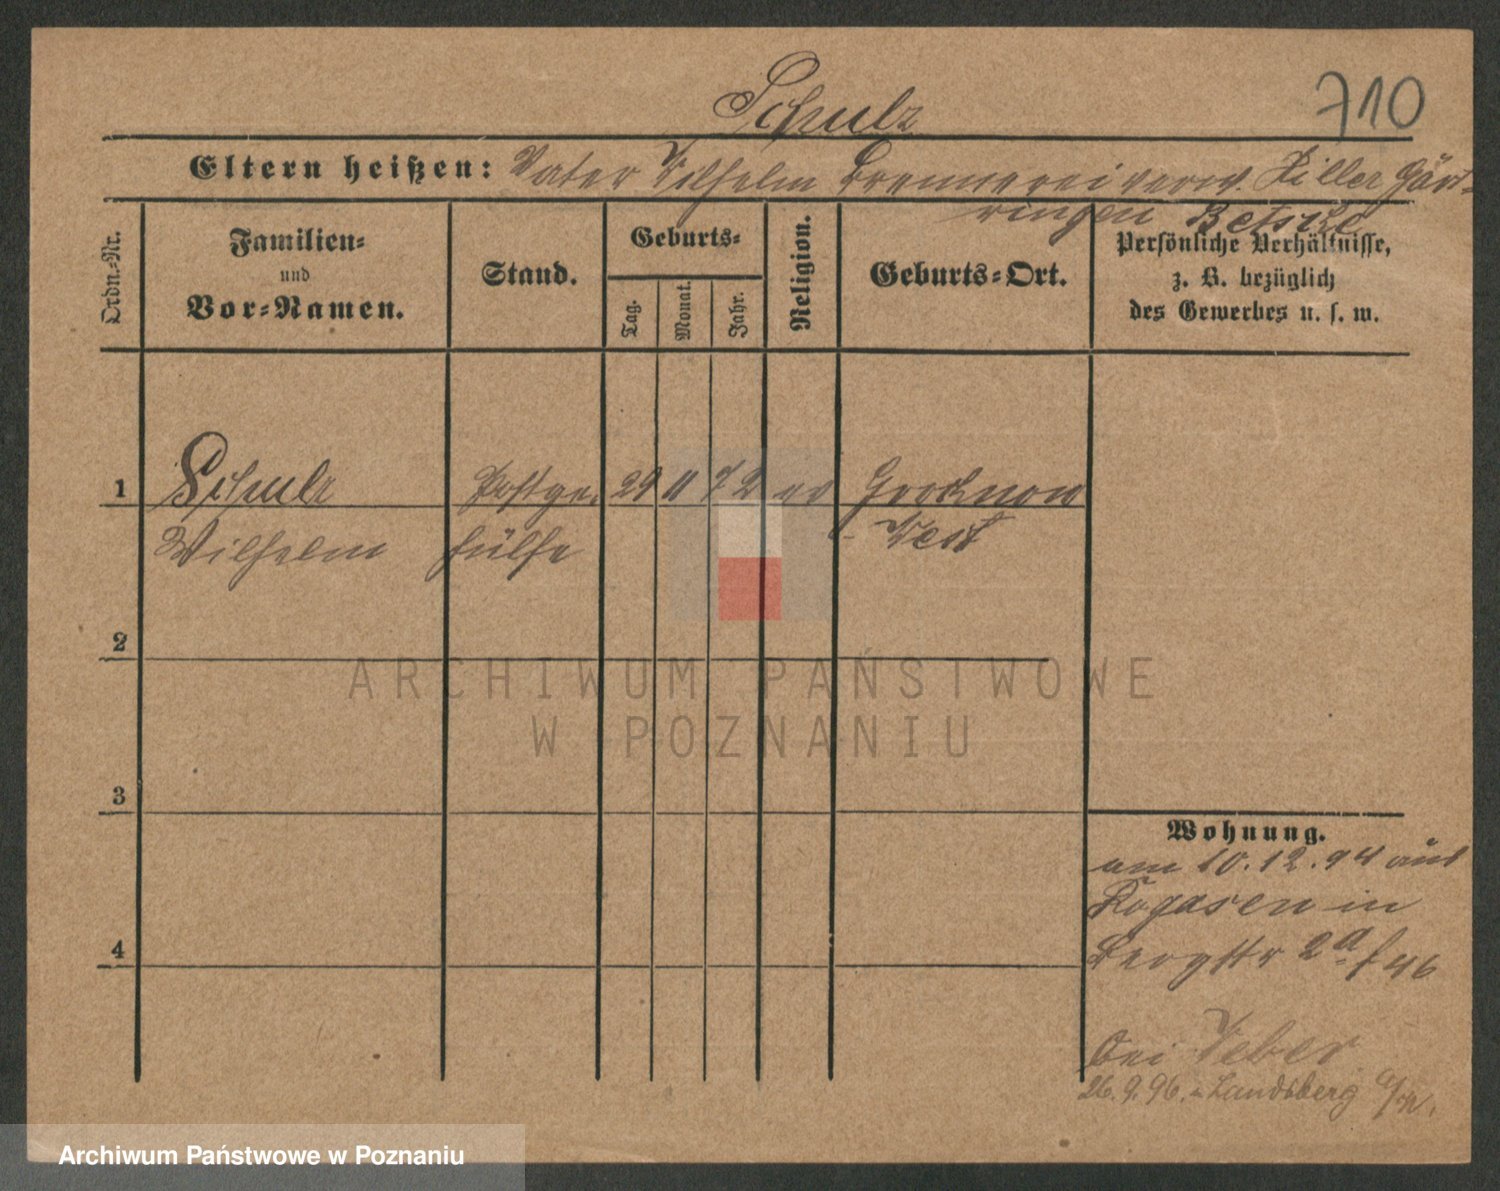 710
Schulz
Eltern heißen: Vater Wilhelm Brennereiverw. Ziller Gärt-
ringen Betsche
Ordn.-Nr.
Familien-
und
Vor-Namen.
Stand.
Geburts-
Tag.
Monat.
Jahr.
Religion.
Geburts-Ort.
Persönliche Verhältnisse,
z. B. bezüglich
des Gewerbes u. s. w.
1 Schulz Postge- 29 11 72 ev Grochnow
Wilhelm hülfe
2
3
4
Wohnung.
am 10.12.94 aus
Rogasen in
Bergstr 2a f 46
bei Weber
26.9.96. n Landsberg a/W.
ARCHIWUM PAŃSTWOWE
W POZNANIU
Archiwum Państwowe w Poznaniu